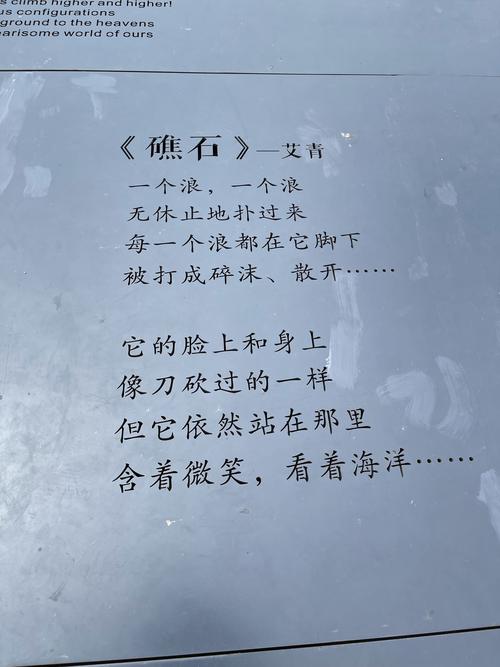 climb higher and higher!
us configurations
ground to the heavens
earisome world of ours
《礁石》—艾青
一个浪，一个浪
无休止地扑过来
每一个浪都在它脚下
被打成碎沫、散开……
它的脸上和身上
像刀砍过的一样
但它依然站在那里
含着微笑，看着海洋……